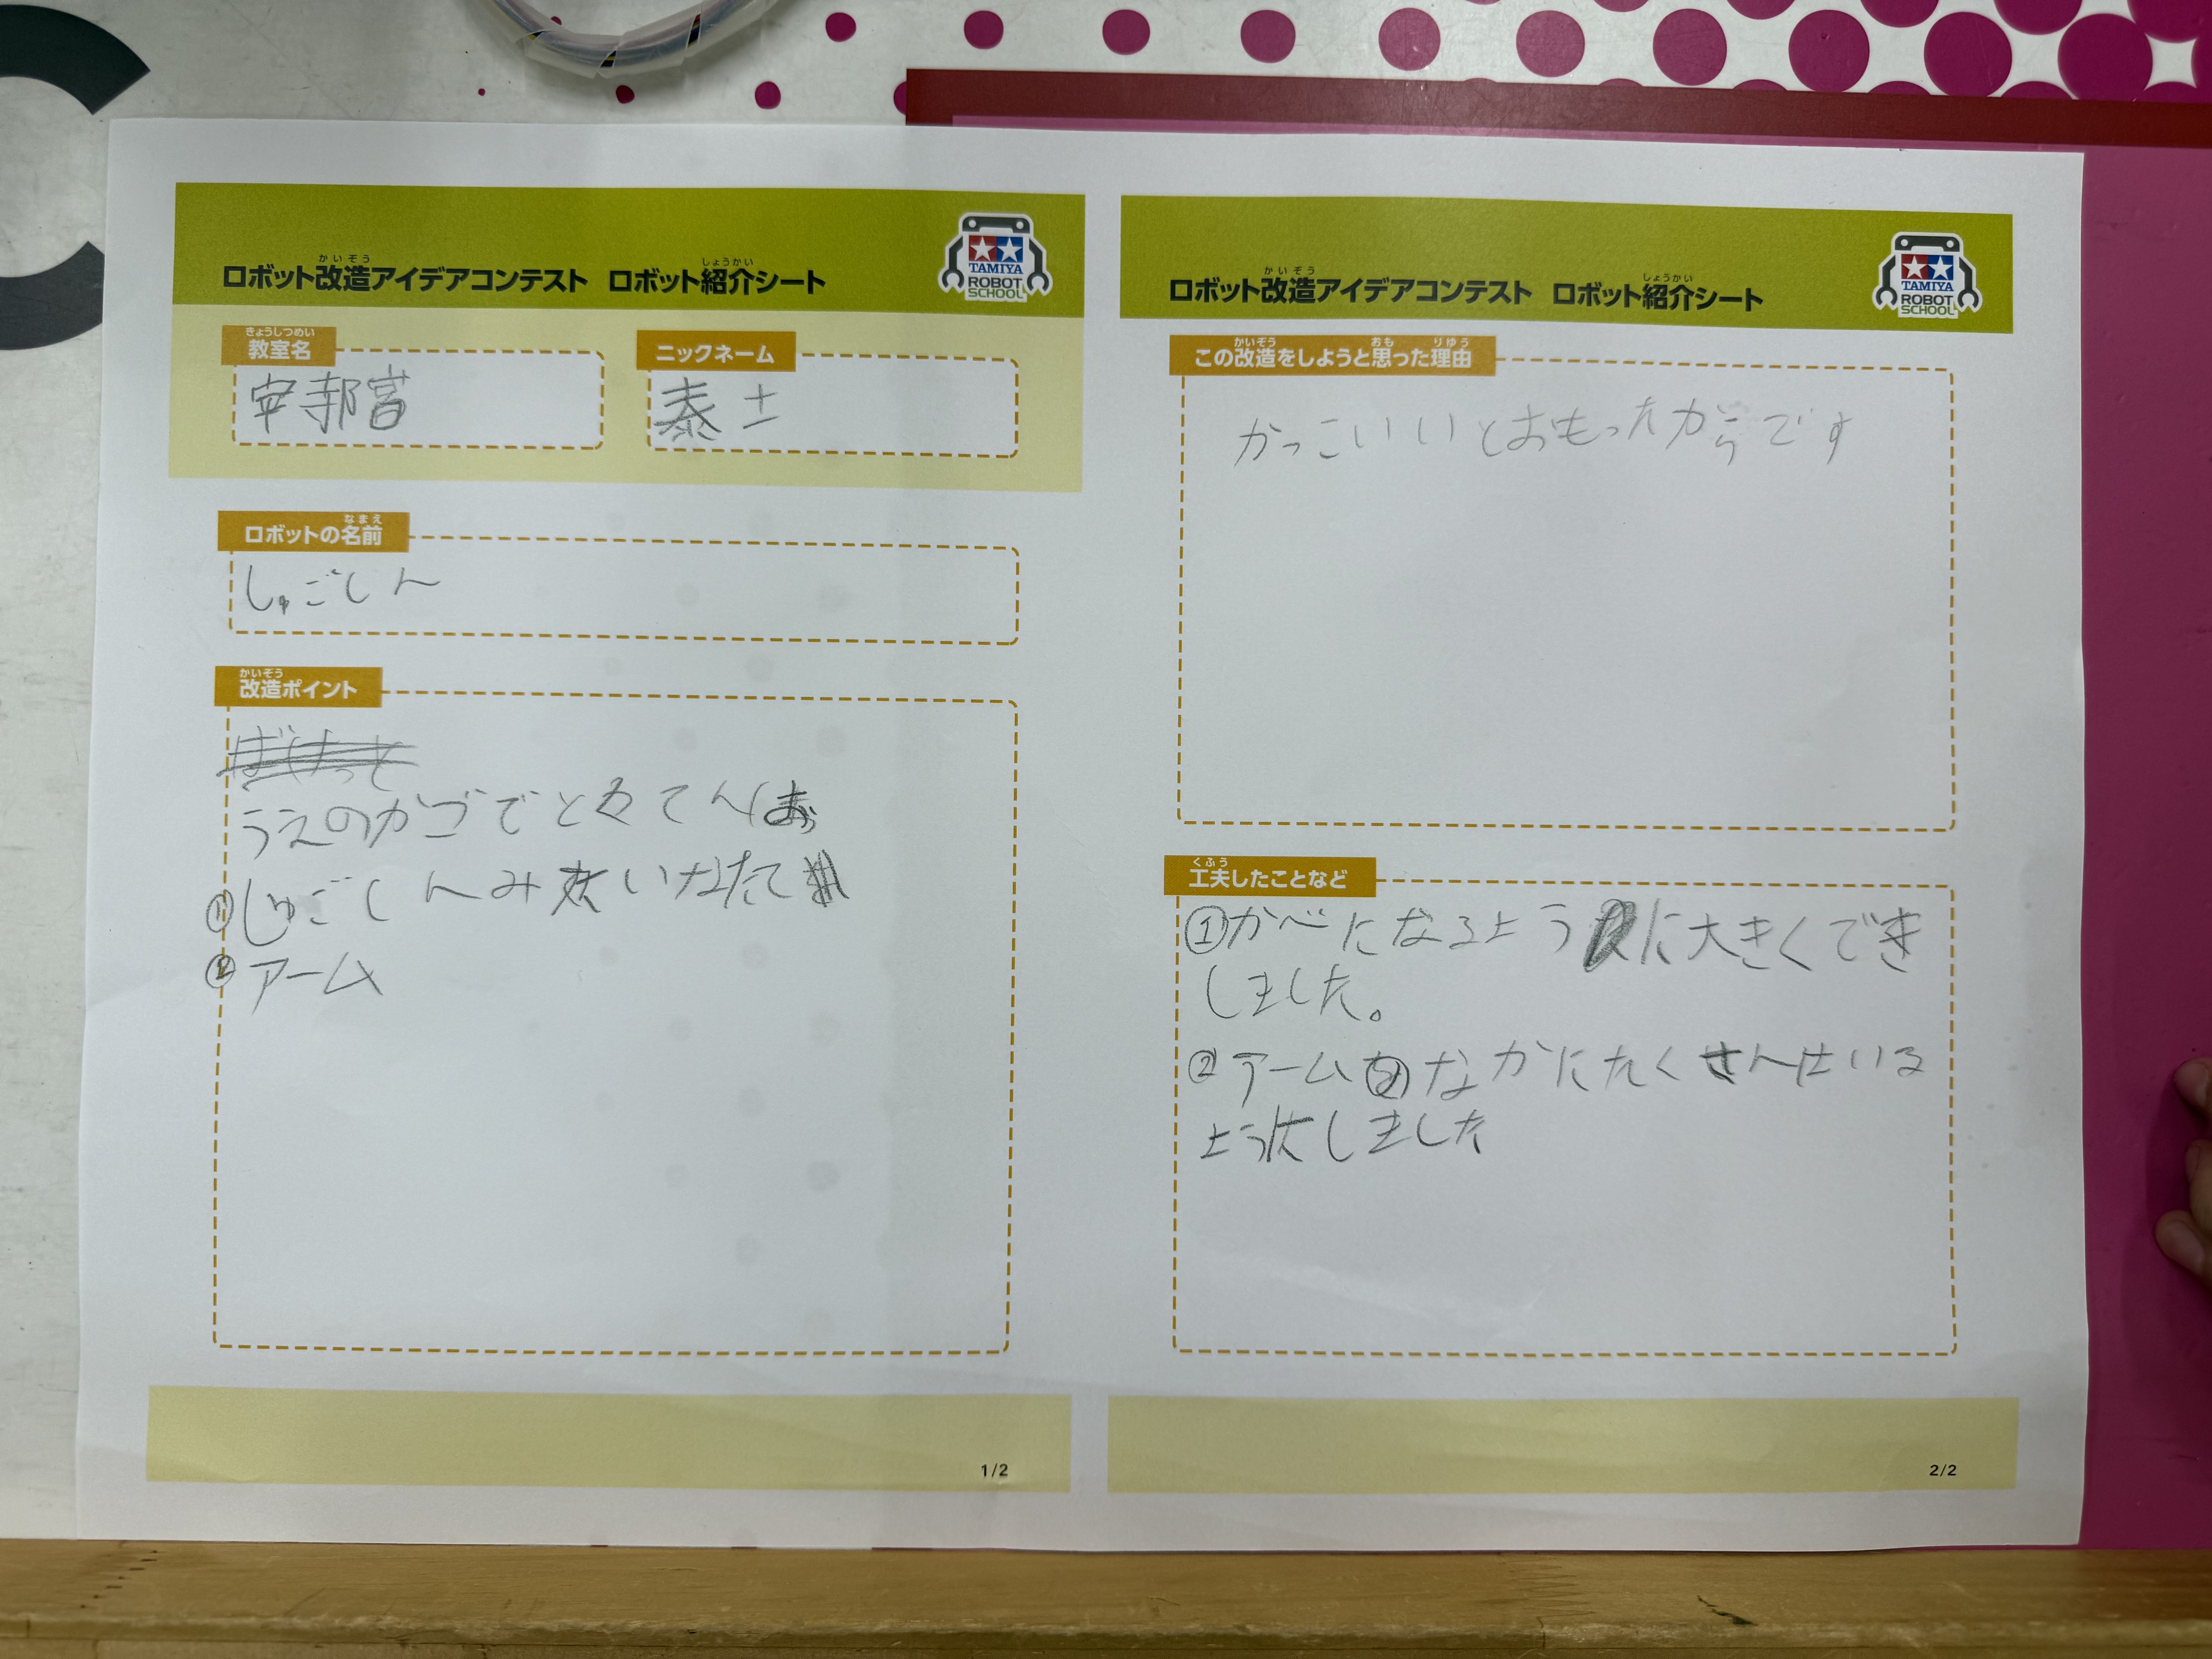 ロボット改造アイデアコンテスト ロボット紹介シート
TAMIYA
ROBOT
SCHOOL
教室名
ニックネーム
泰士
ロボットの名前
しゅごしん
改造ポイント
うえのカゴで
①しゅごしんみたいなたて
②アーム
1/2
ロボット改造アイデアコンテスト ロボット紹介シート
TAMIYA
ROBOT
SCHOOL
この改造をしようと思った理由
かっこいいとおもったからです
工夫したことなど
①かべになるように大きくでき
しました。
②アームのなかにたくさんはいる
ようにしました
2/2